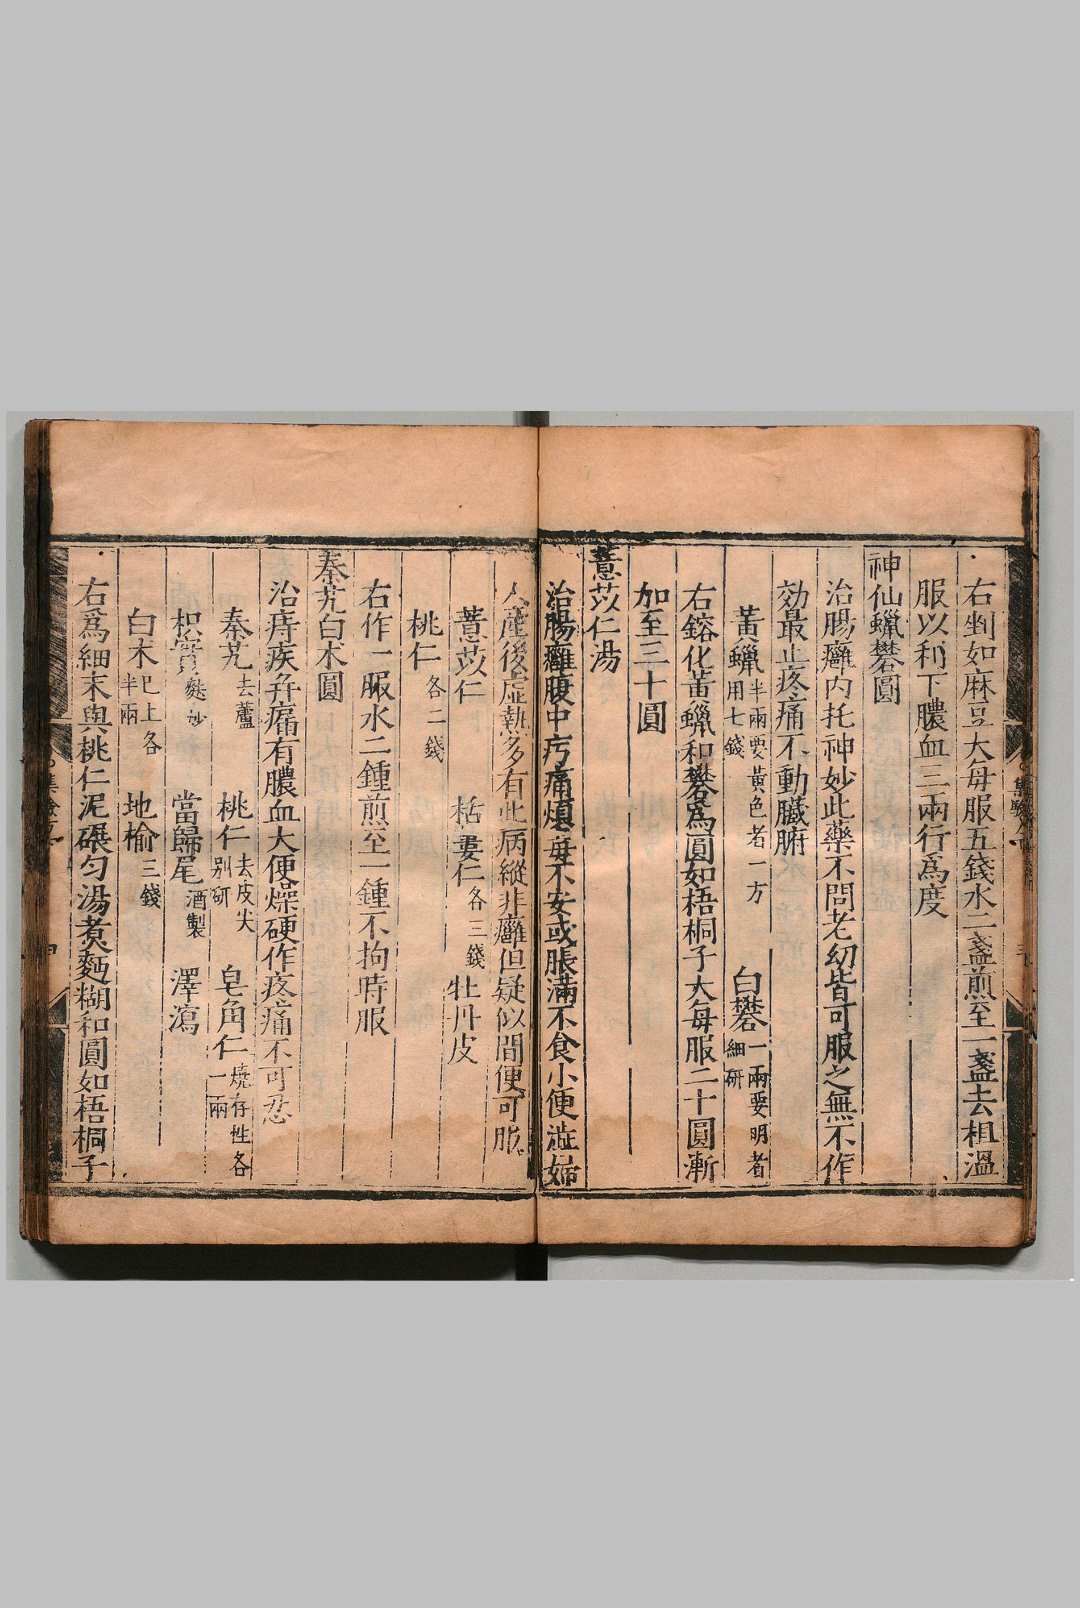 右剉如麻豆大每服五錢水二盞煎至一盞去柤溫
服以利下膿血三兩行爲度
神仙蠟礬圓
治腸癰内托神妙此藥不問老幼皆可服之無不作
効最止疼痛不動臟腑
黃蠟半兩要黃色者一方用七錢 白礬一兩要明者細研
右鎔化黃蠟和礬爲圓如梧桐子大每服二十圓漸
加至三十圓
薏苡仁湯
治腸癰腹中㽲痛煩毒不安或脹滿不食小便澁婦
人產後虛熱多有此病縱非癰但疑似間便可服
薏苡仁 栝蔞仁各三錢 牡丹皮
桃仁各二錢
右作一服水二鍾煎至一鍾不拘時服
秦艽白术圓
治痔疾并痛有膿血大便燥硬作疼痛不可忍
秦艽去蘆 桃仁去皮尖別研 皂角仁燒存性各一兩
枳實麩炒 當歸尾酒製 澤瀉
白术已上各半兩 地榆三錢
右爲細末與桃仁泥碾勻湯煮麪糊和圓如梧桐子